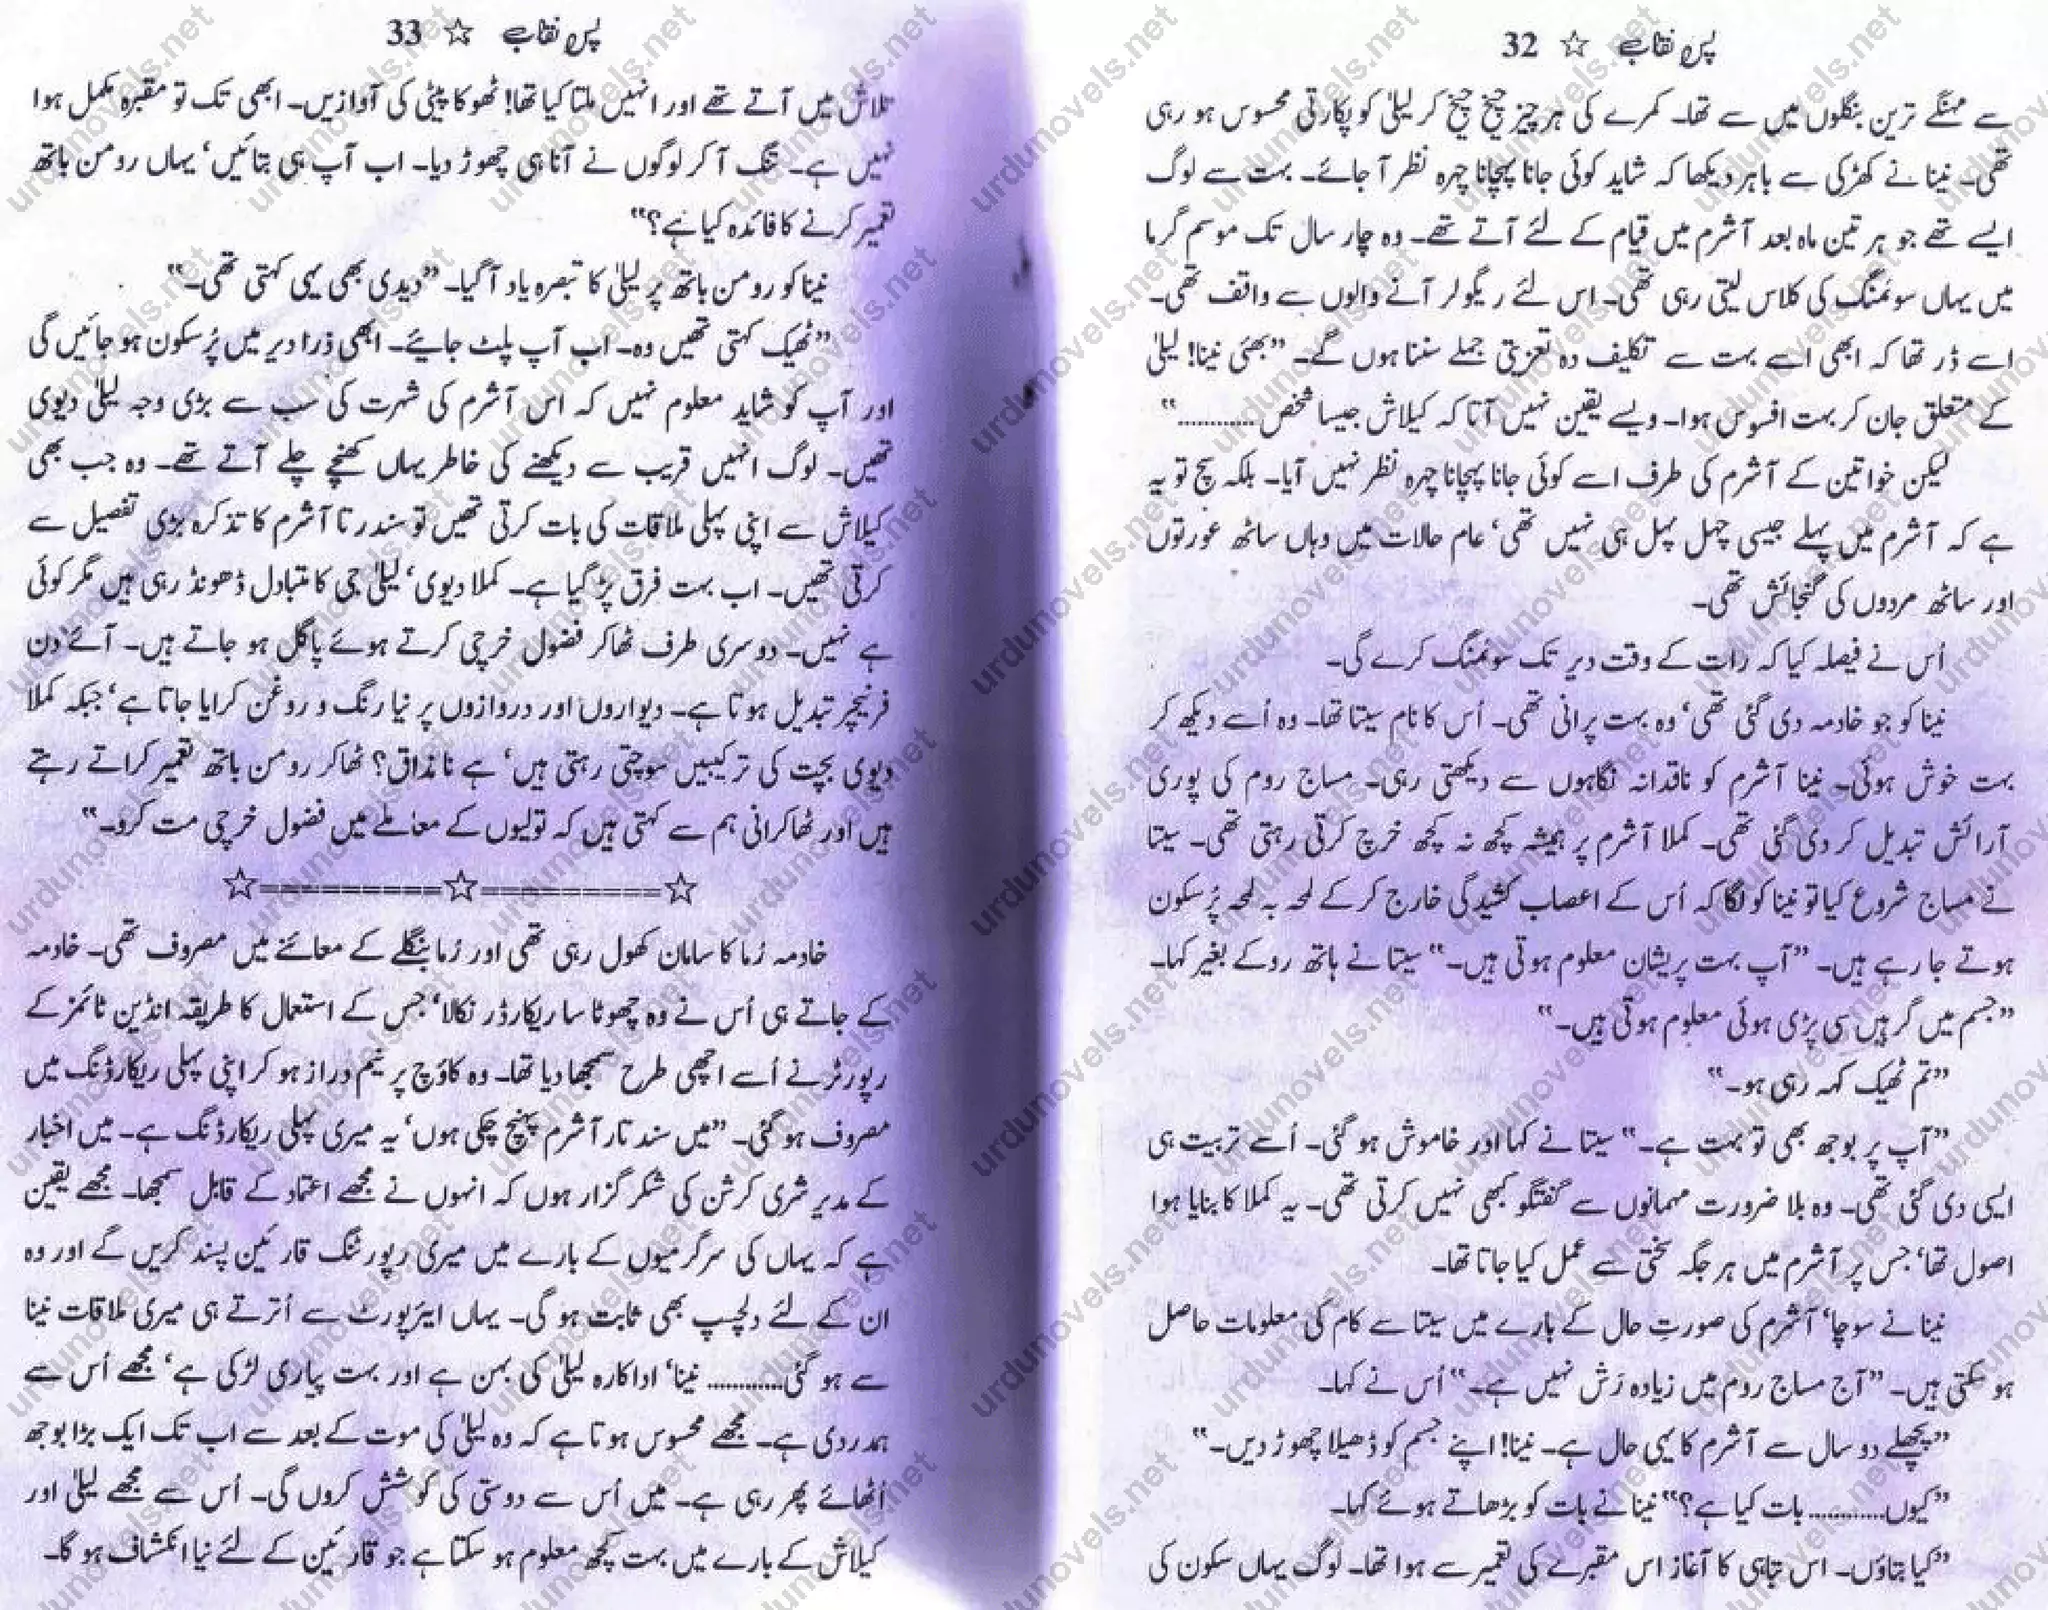 پس نقاب ☆ 32
سے مہنگے ترین بنگلوں میں سے تھا۔ کمرے کی ہر چیز چیخ چیخ کر لیلیٰ کو پکارتی محسوس ہو رہی
تھی۔ نینا نے کھڑکی سے باہر دیکھا کہ شاید کوئی جانا پہچانا چہرہ نظر آ جائے۔ بہت سے لوگ
ایسے تھے جو ہر تین ماہ بعد آشرم میں قیام کے لئے آتے تھے۔ وہ چار سال تک موسم گرما
میں یہاں سوئمنگ کی کلاس لیتی رہی تھی۔ اس لئے ریگولر آنے والوں سے واقف تھی۔
اسے ڈر تھا کہ ابھی اسے بہت سے تکلیف دہ تعزیتی جملے سننا ہوں گے۔ ”بھئی نینا! لیلیٰ
کے متعلق جان کر بہت افسوس ہوا۔ ویسے یقین نہیں آتا کہ کیلاش جیسا شخص............“
لیکن خواتین کے آشرم کی طرف اسے کوئی جانا پہچانا چہرہ نظر نہیں آیا۔ بلکہ سچ تو یہ
ہے کہ آشرم میں پہلے جیسی چہل پہل ہی نہیں تھی‘ عام حالات میں وہاں ساٹھ عورتوں
اور ساٹھ مردوں کی گنجائش تھی۔
اُس نے فیصلہ کیا کہ رات کے وقت دیر تک سوئمنگ کرے گی۔
نینا کو جو خادمہ دی گئی تھی‘ وہ بہت پرانی تھی۔ اُس کا نام سیتا تھا۔ وہ اُسے دیکھ کر
بہت خوش ہوئی۔ نینا آشرم کو ناقدانہ نگاہوں سے دیکھتی رہی۔ مساج روم کی پوری
آرائش تبدیل کر دی گئی تھی۔ کملا آشرم پر ہمیشہ کچھ نہ کچھ خرچ کرتی رہتی تھی۔ سیتا
نے مساج شروع کیا تو نینا کو لگا کہ اُس کے اعصاب کشیدگی خارج کر کے لمحہ بہ لمحہ پُرسکون
ہوتے جا رہے ہیں۔ ”آپ بہت پریشان معلوم ہوتی ہیں۔“ سیتا نے ہاتھ روکے بغیر کہا۔
”جسم میں گرہیں سی پڑی ہوئی معلوم ہوتی ہیں۔“
”تم ٹھیک کہہ رہی ہو۔“
”آپ پر بوجھ بھی تو بہت ہے۔“ سیتا نے کہا اور خاموش ہو گئی۔ اُسے تربیت ہی
ایسی دی گئی تھی۔ وہ بلا ضرورت مہمانوں سے گفتگو کبھی نہیں کرتی تھی۔ یہ کملا کا بنایا ہوا
اصول تھا‘ جس پر آشرم میں ہر جگہ سختی سے عمل کیا جاتا تھا۔
نینا نے سوچا‘ آشرم کی صورتِ حال کے بارے میں سیتا سے کام کی معلومات حاصل
ہو سکتی ہیں۔ ”آج مساج روم میں زیادہ رَش نہیں ہے۔“ اُس نے کہا۔
”پچھلے دو سال سے آشرم کا یہی حال ہے۔ نینا! اپنے جسم کو ڈھیلا چھوڑ دیں۔“
”کیوں............ بات کیا ہے؟“ نینا نے بات کو بڑھاتے ہوئے کہا۔
”کیا بتاؤں۔ اس تباہی کا آغاز اس مقبرے کی تعمیر سے ہوا تھا۔ لوگ یہاں سکون کی
پس نقاب ☆ 33
تلاش میں آتے تھے اور انہیں ملتا کیا تھا! ٹھوکا پیٹی کی آوازیں۔ ابھی تک تو مقبرہ مکمل ہوا
نہیں ہے۔ تنگ آ کر لوگوں نے آنا ہی چھوڑ دیا۔ اب آپ ہی بتائیں‘ یہاں رومن باتھ
تعمیر کرنے کا فائدہ کیا ہے؟“
نینا کو رومن باتھ پر لیلیٰ کا تبصرہ یاد آ گیا۔ ”دیدی بھی یہی کہتی تھی۔“
”ٹھیک کہتی تھیں وہ۔ اب آپ پلٹ جایئے۔ ابھی ذرا دیر میں پُرسکون ہو جائیں گی
اور آپ کو شاید معلوم نہیں کہ اس آشرم کی شہرت کی سب سے بڑی وجہ لیلیٰ دیوی
تھیں۔ لوگ انہیں قریب سے دیکھنے کی خاطر یہاں کھنچے چلے آتے تھے۔ وہ جب بھی
کیلاش سے اپنی پہلی ملاقات کی بات کرتی تھیں تو سندرتا آشرم کا تذکرہ بڑی تفصیل سے
کرتی تھیں۔ اب بہت فرق پڑ گیا ہے۔ کملا دیوی‘ لیلیٰ جی کا متبادل ڈھونڈ رہی ہیں مگر کوئی
ہے نہیں۔ دوسری طرف ٹھاکر فضول خرچی کرتے ہوئے پاگل ہو جاتے ہیں۔ آئے دن
فرنیچر تبدیل ہوتا ہے۔ دیواروں اور دروازوں پر نیا رنگ و روغن کرایا جاتا ہے‘ جبکہ کملا
دیوی بچت کی ترکیبیں سوچتی رہتی ہیں‘ ہے نا مذاق؟ ٹھاکر رومن باتھ تعمیر کراتے رہتے
ہیں اور ٹھاکرانی ہم سے کہتی ہیں کہ تولیوں کے معاملے میں فضول خرچی مت کرو۔“
☆==========☆==========☆
خادمہ رُما کا سامان کھول رہی تھی اور رُما بنگلے کے معائنے میں مصروف تھی۔ خادمہ
کے جاتے ہی اُس نے وہ چھوٹا سا ریکارڈر نکالا‘ جس کے استعمال کا طریقہ انڈین ٹائمز کے
رپورٹر نے اُسے اچھی طرح سمجھا دیا تھا۔ وہ کاؤچ پر نیم دراز ہو کر اپنی پہلی ریکارڈنگ میں
مصروف ہو گئی۔ ”میں سندتار آشرم پہنچ چکی ہوں‘ یہ میری پہلی ریکارڈنگ ہے۔ میں اخبار
کے مدیر شری کرشن کی شکر گزار ہوں کہ انہوں نے مجھے اعتماد کے قابل سمجھا۔ مجھے یقین
ہے کہ یہاں کی سرگرمیوں کے بارے میں میری رپورٹنگ قارئین پسند کریں گے اور وہ
ان کے لئے دلچسپ بھی ثابت ہو گی۔ یہاں ایئرپورٹ سے اُترتے ہی میری ملاقات نینا
سے ہو گئی............ نینا‘ اداکارہ لیلیٰ کی بہن ہے اور بہت پیاری لڑکی ہے‘ مجھے اُس سے
ہمدردی ہے۔ مجھے محسوس ہوتا ہے کہ وہ لیلیٰ کی موت کے بعد سے اب تک ایک بڑا بوجھ
اُٹھائے پھر رہی ہے۔ میں اُس سے دوستی کی کوشش کروں گی۔ اُس سے مجھے لیلیٰ اور
کیلاش کے بارے میں بہت کچھ معلوم ہو سکتا ہے جو قارئین کے لئے نیا انکشاف ہو گا۔